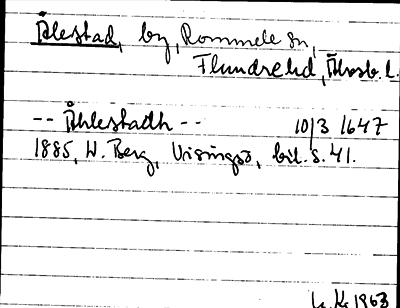 Ålestad, by, Rommele sn,
Flundre hd, Älvsb. l.
-- Åhlestadh -- 10/3 1647
1885, W. Berg, Visingsö, bil. s. 41.
1963